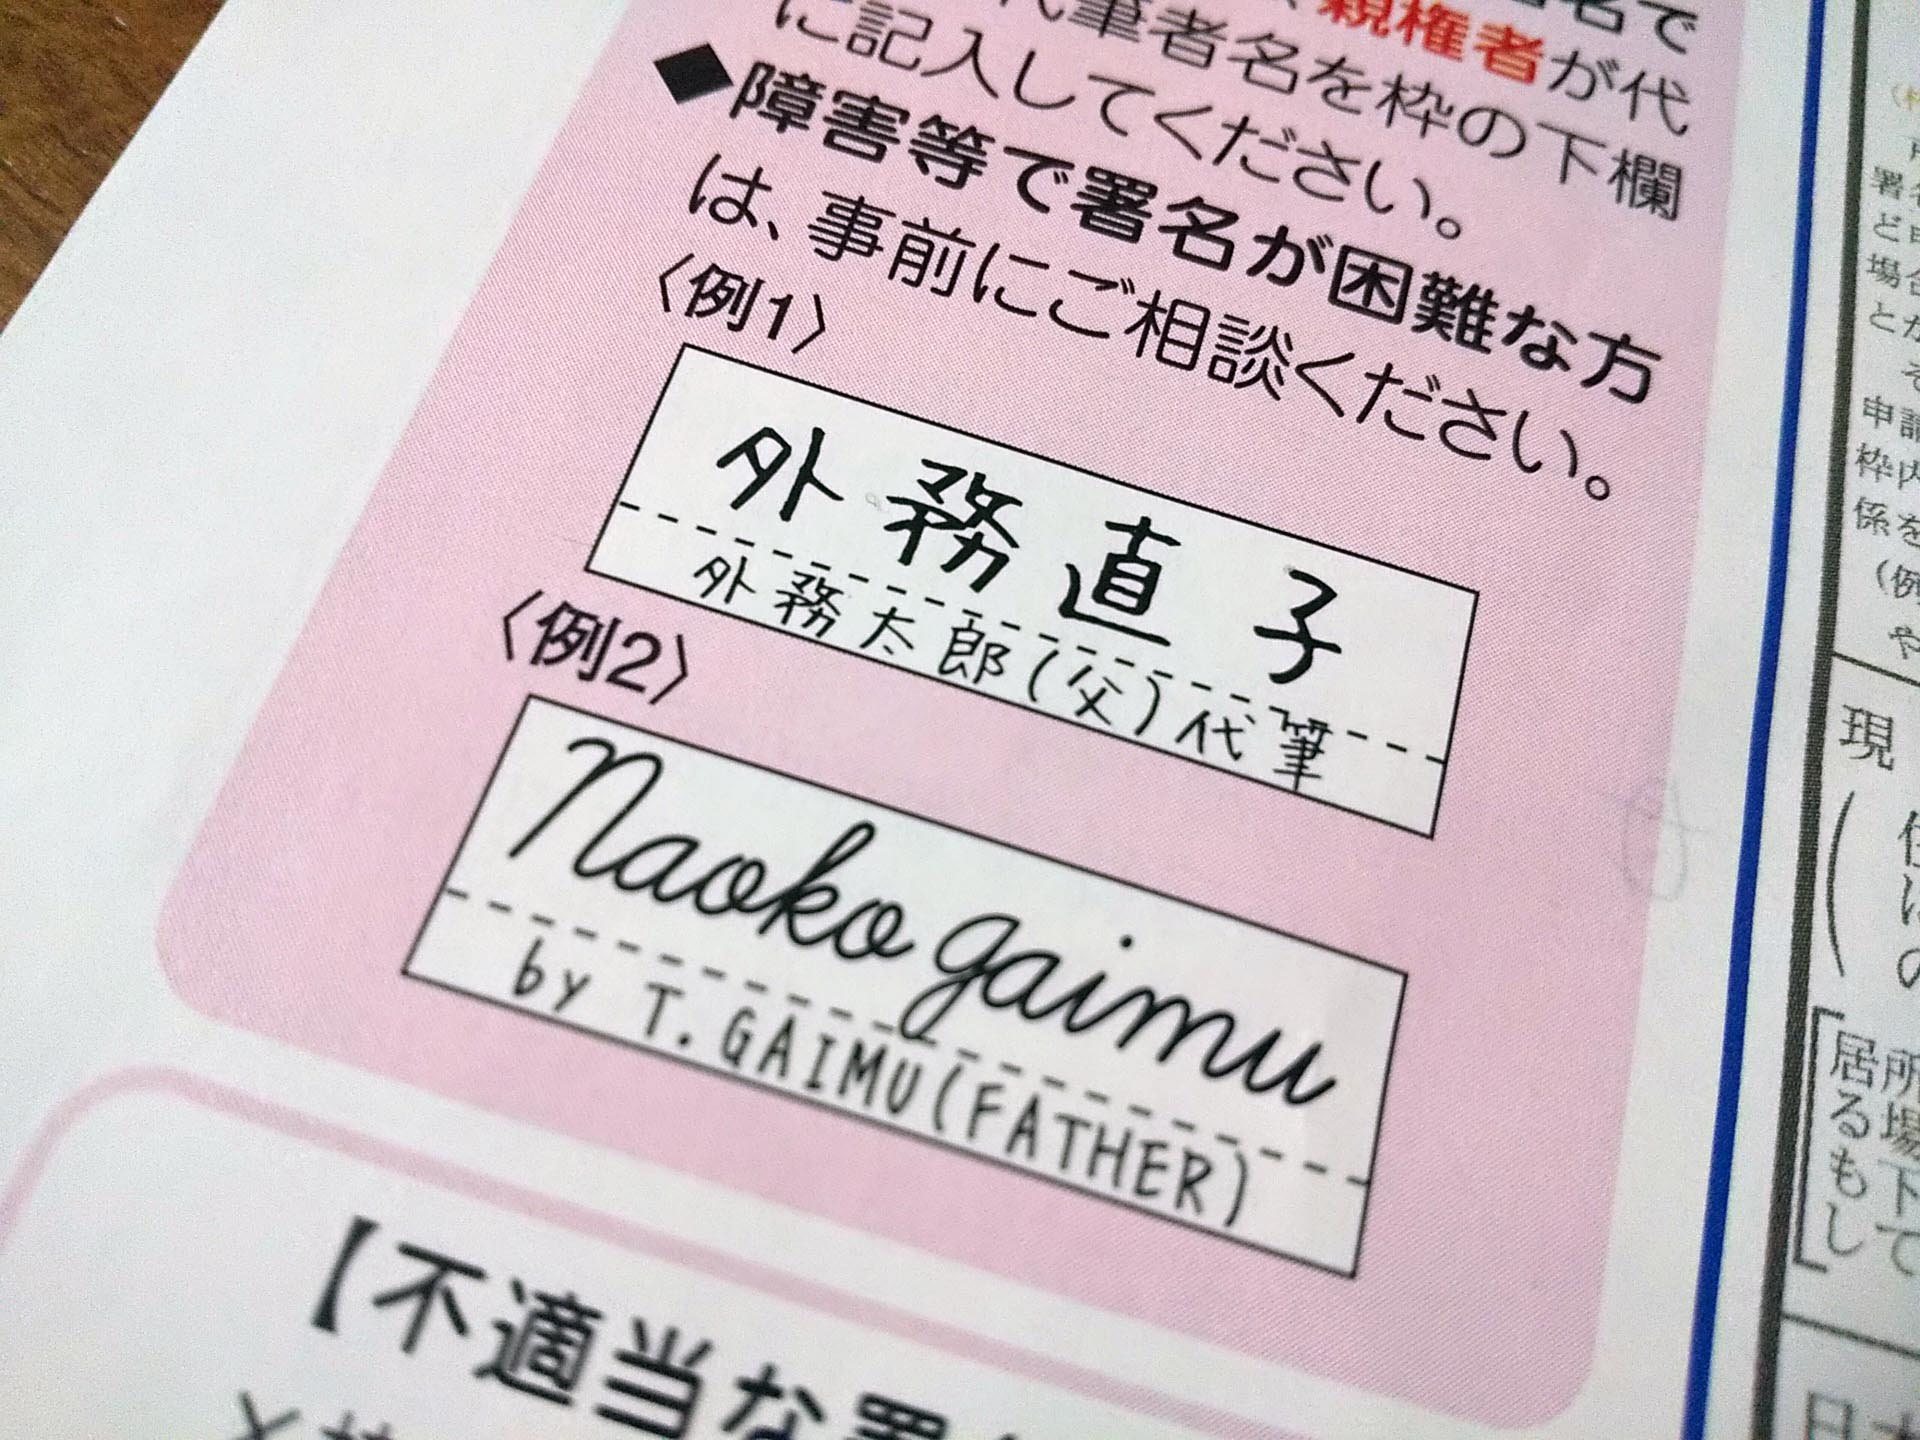 名で
親権者が代
代筆者名を枠の下欄
に記入してください。
◆障害等で署名が困難な方
は、事前にご相談ください。
〈例1〉
外務直子
外務太郎(父)代筆
〈例2〉
Naoko gaimu
by T.GAIMU(FATHER)
【不適当な署
署名
ど申
場合
とが
そ
申請
枠内
係を
(例
や
現
住
に
の
所
場
下
て
居
る
も
し
日本